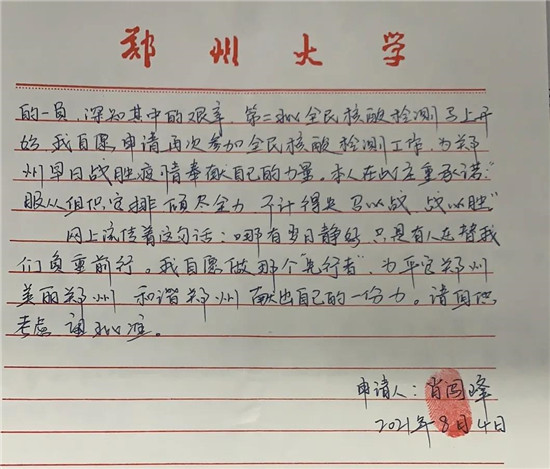 郑州大学
的一员,深知其中的艰辛。第二批全民核酸检测马上开
始,我自愿申请再次参加全民核酸检测工作,为郑
州早日战胜疫情奉献自己的力量。本人在此庄重承诺:"
服从组织安排 倾尽全力 不计得失 召必战,战必胜"
网上流传着这句话:哪有岁月静好,只是有人在替我
们负重前行。我自愿做那个"先行者",为平安郑州
美丽郑州 和谐郑州 献出自己的一份力。请组织
考虑 批准。
申请人:肖 峰
2021年8月4日